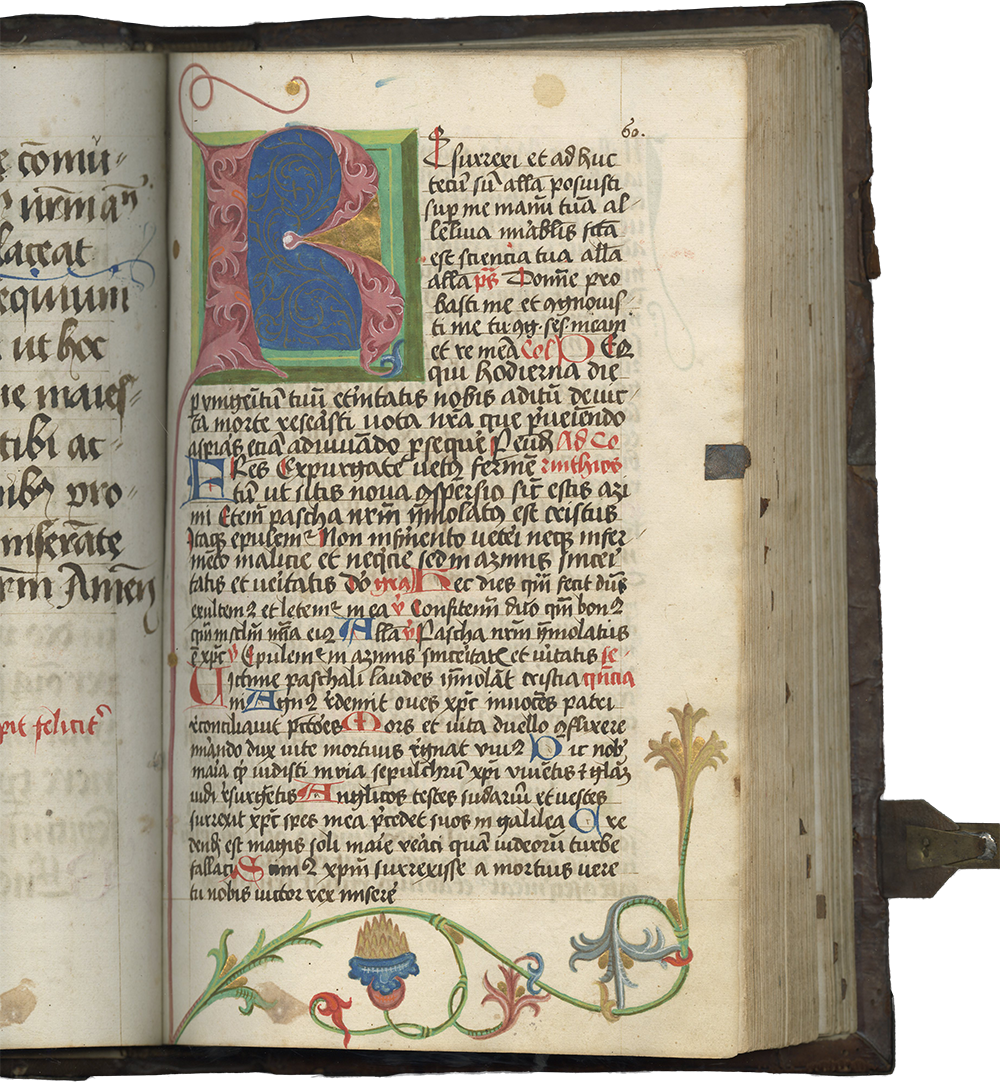 e com̄u-
n̄rm an̄
laceat
equium
ut hoc
ne maies-
tibi ac-
nibꝫ pro-
miserate
r̄m Amen
pit felicit̄
60.
R Esurrexi et ad huc
tecū sū alla posuisti
sup me manū tuā al-
leluia mirabilis fcā
est sciencia tua alla
alla ps̄ Domine pro
basti me et ꝯgnouis-
ti me tu ꝯg. ses. meam
et re meā Col̄ DEꝰ
qui hodierna die
p vnigenitū tuū et̄nitatis nobis aditū deuic-
ta morte reserasti uota nr̄a que p̄ueniēdo
aspiras eciā adiuuādo ꝓsequer̄ P eundē Ad Co
FRes Expurgate vetꝰ fermē rinthios
tū ut sitis noua ꝯspersio sic̄ estis azi
mi Etem̄ pascha nr̄m ȳmolatꝰ est cristus
Itaqꝫ epulemꝛ Non in fermēto veteri neqꝫ in fer-
mēto malicie et neq̄cie sed in azimis sinceri
tatis et ueritatis Do gr̄a Hec dies quā fecit dn̄s
exultemꝰ et letemꝛ in ea v̄ Confitemi dn̄o qm̄ bonꝰ
qm̄ in sclm̄ mīa eiꝰ Alla v̄ Pascha nr̄m ȳmolatus
ē xp̄c v̄ Epulemꝛ in azimis sinceritatꝭ et ūitatis se-
Uictime paschali laudes ȳmolāt cristia quēcia
ni Agnꝰ redemit oues xp̄c inocēs patri
reconciliauit pctōres Mors et uita duello ꝯflixere
mirādo dux uite mortuus regnat viuꝰ Dic nobꝭ
maria qͥd uidisti in via sepulchrū xp̄i viuētis et glaꝫ
uidi resurgētis Anglicos testes sudariū et uestes
surrexit xp̄c spes mea p̄cedet suos in galilea Cre
dendū est magis soli marie veraci quā iudeorū turbe
fallaci Scimꝰ xp̄m surrexisse a mortuis uere
tu nobis uictor rex misere